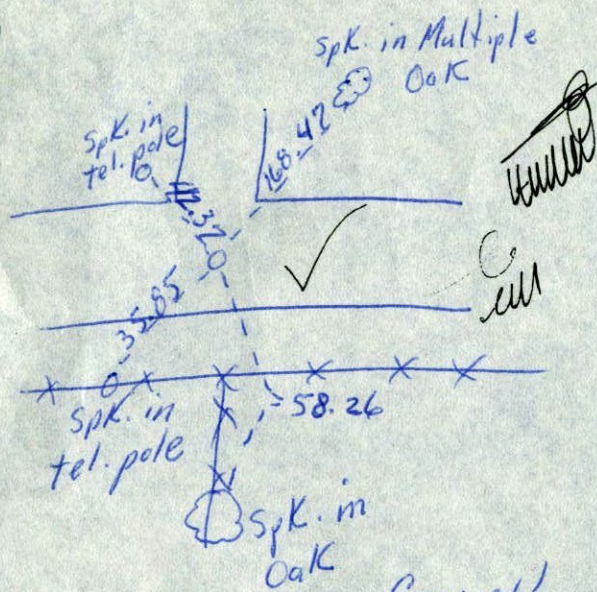 Spk. in Multiple
Oak
Spk. in
tel. pole
168.47
42.37
35.85
58.26
Spk. in
tel. pole
Spk. in
Oak